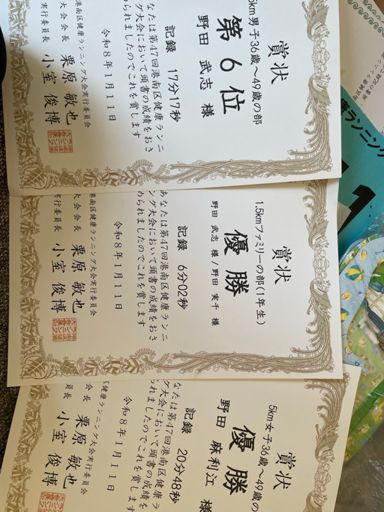 賞状
5km男子36歳～49歳の部
第6位
野田 武志 様
記録 17分17秒
なたは第47回港南区健康ランニ
グ大会において頭書の成績をおさ
られましたのでこれを賞します
令和8年1月11日
南区健康ランニング大会実行委員会
大会会長 栗原 敏也
実行委員長 小室 俊博
賞状
1.5kmファミリーの部(1年生)
優勝
野田 武志 様/野田 実千 様
記録 6分02秒
あなたは第47回港南区健康ランニ
ング大会において頭書の成績をおさ
められましたのでこれを賞します
令和8年1月11日
港南区健康ランニング大会実行委員会
大会会長 栗原 敏也
行委員長 小室 俊博
賞状
5km女子36歳～49歳の
優勝
野田 麻利江 様
記録 20分48秒
なたは第47回港南区健康ランニ
グ大会において頭書の成績をおさ
られましたのでこれを賞しま
令和8年1月11日
健康ランニング大会実行委員会
会長 栗原 敏也
委員長 小室 俊博
康ランニング
1